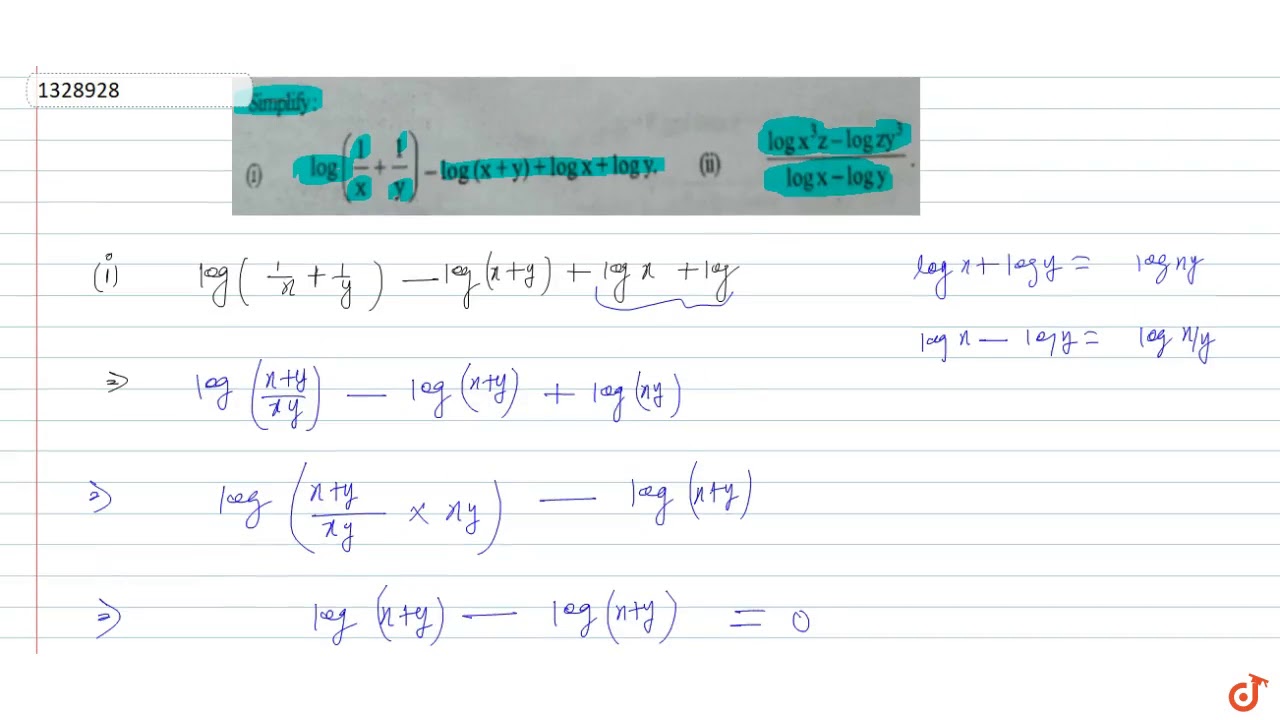 1328928
Simplify:
(i) log(1/x + 1/y) − log (x + y) + log x + log y. (ii) (log x³z − log zy³)/(log x − log y).
(i) log(1/x + 1/y) − log(x+y) + log x + log
log x + log y = log xy
log x − log y = log x/y
⇒ log((x+y)/xy) − log(x+y) + log(xy)
⇒ log((x+y)/xy × xy) − log(x+y)
⇒ log(x+y) − log(x+y) = 0